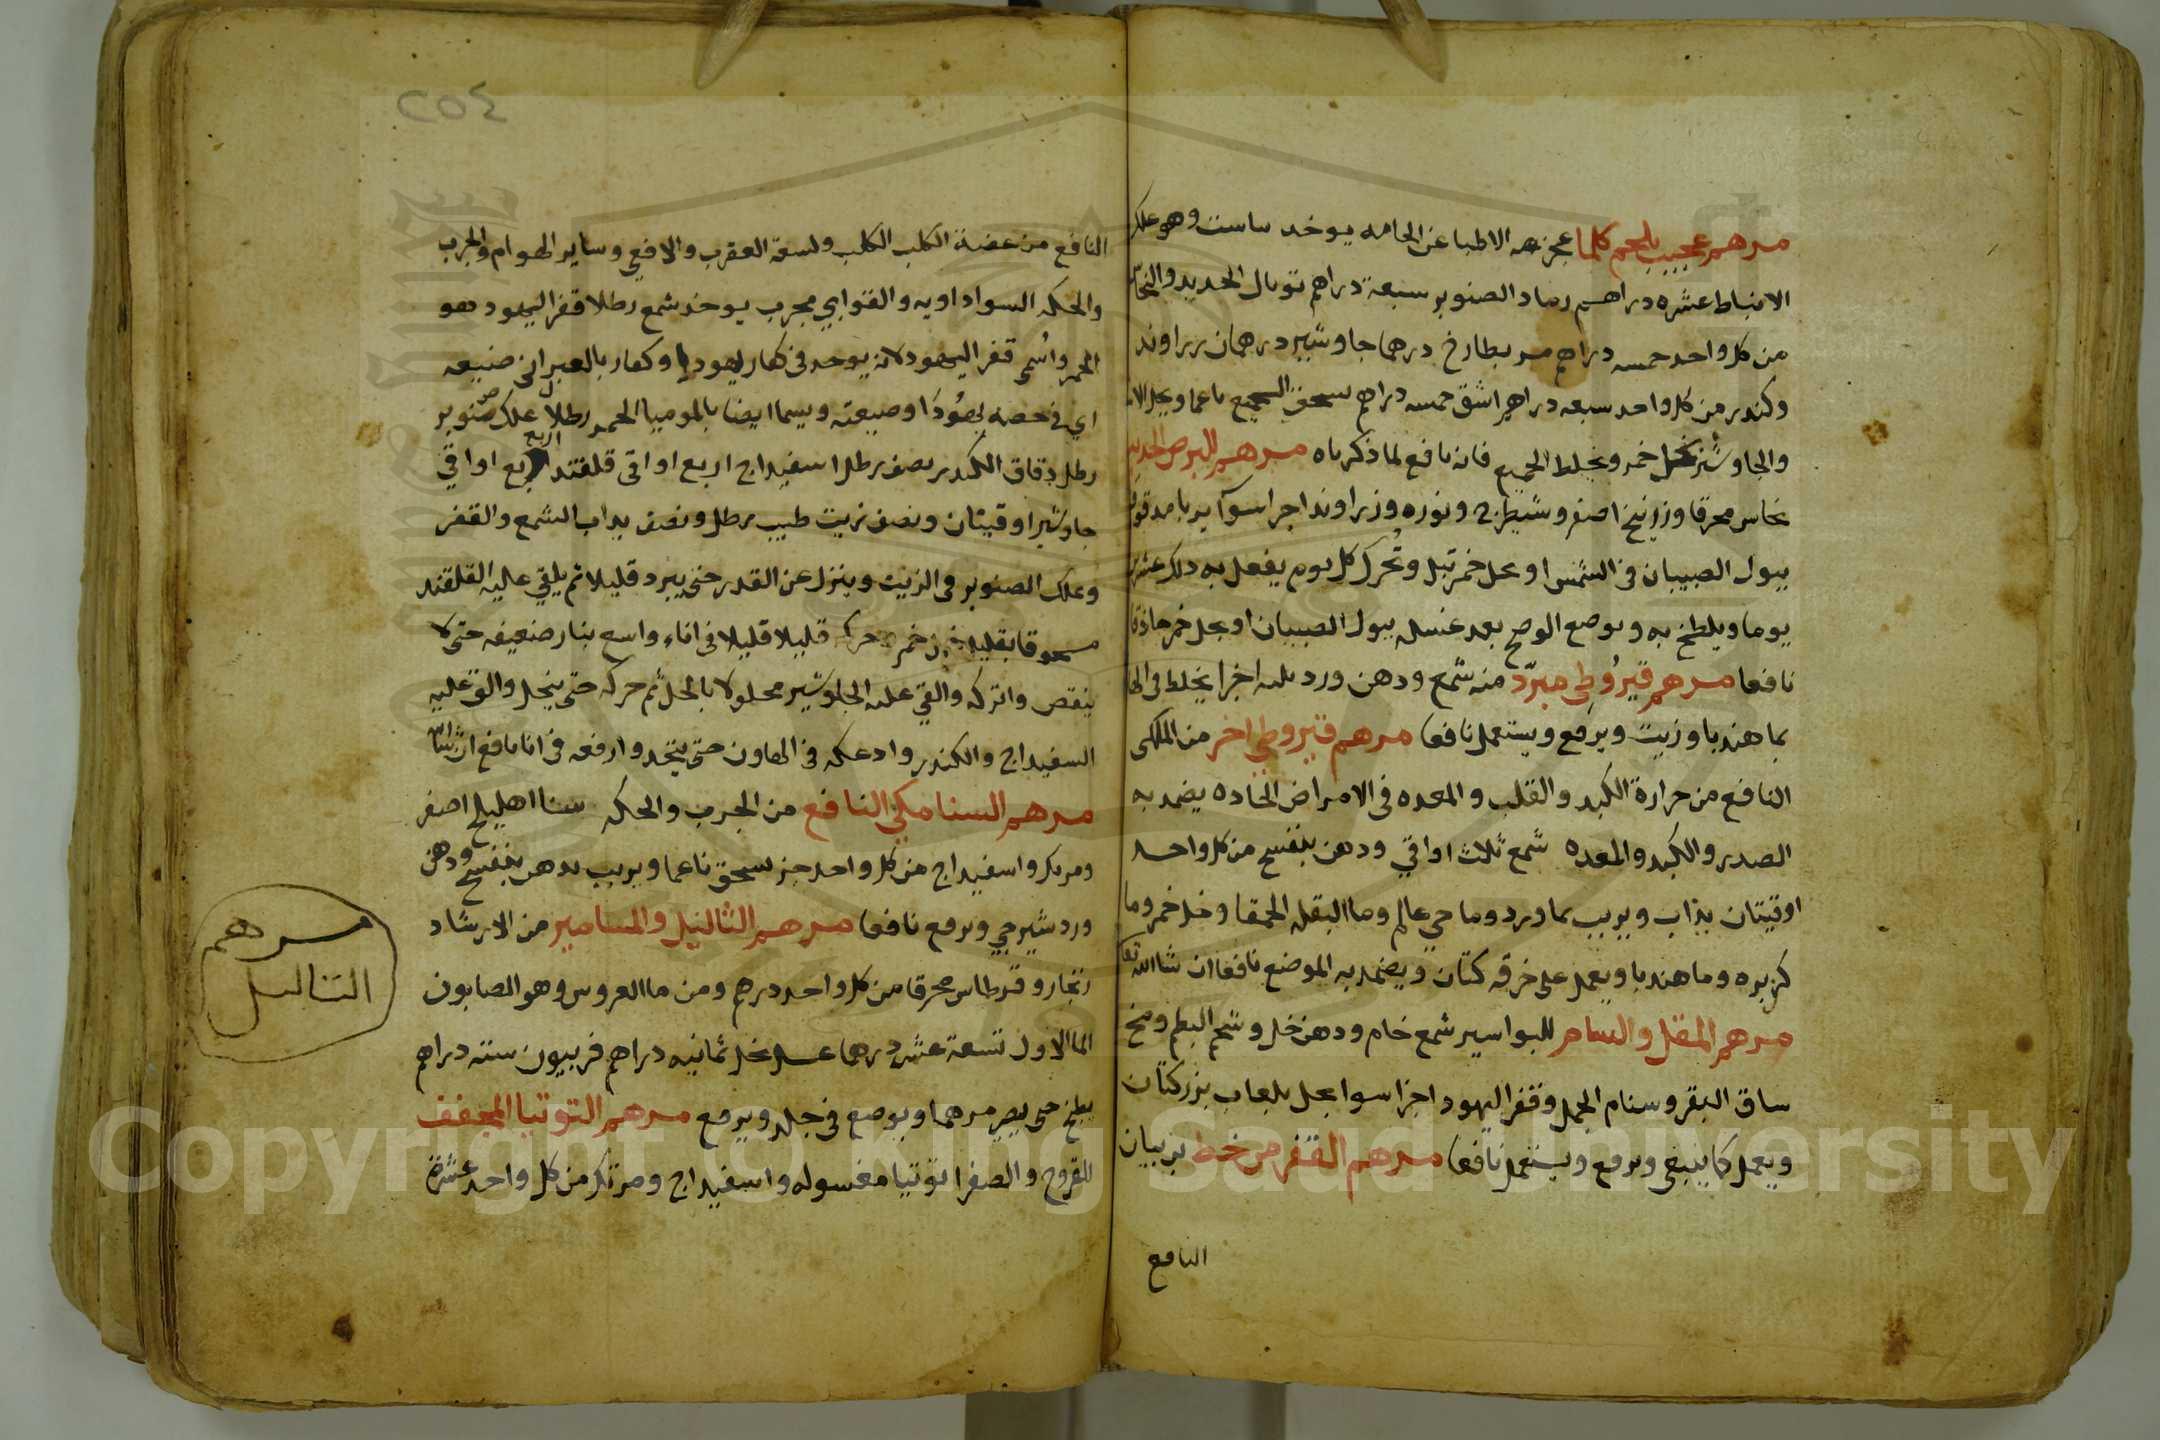 مرهم عجيب يلحم كلما عجزت الاطبا عن الحامه يوخد ساست وهو علك
الانباط عشره دراهم رماد الصنوبر سبعة دراهم توبال الحديد والنحاس
من كل واحد خمسه دراهم مر بطارخ درهما جاوشير درهمان زراوند
وكندر من كل واحد سبعه دراهم اشق خمسه دراهم يسحق الجميع ناعما ويحل الاشق
والجاوشير بخل خمر ويخلط الجميع فانه نافع لما ذكرناه مرهم للبرص
نحاس محرقا وزرنيخ اصفر وشيطرج ونوره وزراوند اجرا سوا يربا
ببول الصبيان في الشمس او بخل خمر تبل وتحرك كل يوم يفعل به دلك عشرين
يوما ويلطخ به ويوضع الوضح بعد غسله ببول الصبيان او بخل خمر حاذق
نافعا مرهم قيروطي مبرد منه شمع ودهن ورد ثلثه اجرا يخلط في
بما هندبا وزيت ويرفع ويستعمل نافعا مرهم قيروطي اخر من الملكي
النافع من حرارة الكبد والقلب والمعده في الامراض الحاده يضمد به
الصدر والكبد والمعده شمع ثلاث اواقي ودهن بنفسج من كل واحد
اوقيتان يذاب ويربب بماورد وما حي عالم وما البقله الحمقا وخل خمر وما
كزبره وما هندبا ويعمل على خرقه كتان ويضمد به الموضع نافعا ان شاالله تعا
مرهم المقل للبواسير شمع خام ودهن خل وشحم البط ومخ
ساق البقر وسنام الجمل وقفر اليهود اجزا سوا يحل بلعاب بزر كتان
ويعمل كما ينبغى ويرفع ويستعمل نافعا مرهم القفر من خط
النافع
٢٥٤
النافع من عضة الكلب الكلب ولسعة العقرب والافعي وساير الهوام والجرب
والحكه السواداويه والقوابي مجرب يوخد شمع رطلا قفر اليهود هو
الحمر واسمي قفر اليهود لانه يوجد في كفار يهودا وكفار بالعبراني ضيعه
اي في حصه يهودا او ضيعته ويسما ايضا بالموميا الحمر رطلا علك صنوبر
رطل دقاق الكندر نصف رطل اسفيداج اربع اواقى قلقند اربع اواقي
جاوشير اوقيتان ونصف زيت طيب رطل ونصف يداب الشمع والقفر
وعلك الصنوبر فى الزيت وينزل عن القدر حتى يبرد قليلا ثم يلقي عليه القلقند
مسحوقا بقليل خمر حركه قليلا قليلا في اناء واسع بنار ضعيفه حتى لا
ينقص واتركه والقي عليه الجاوشير محلولا بالخل ثم حركه حتى ينحل والق عليه
السفيداج والكندر وادعكه في الهاون حتى يتحد وارفعه في انا نافع ان شا الله
مرهم السنا مكي النافع من الجرب والحكه سنا اهليلج اصفر
ومرتك واسفيداج من كل واحد جز يسحق ناعما ويربب بدهن بنفسج ودهن
ورد شيرجي ويرفع نافعا مرهم الثاليل والمسامير من الارشاد
زنجار وقرطاس محرقا من كل واحد درهم ومن ما العروس وهو الصابون
الما الاول تسعة عشر درهما عسل نحل ثمانيه دراهم فربيون سته دراهم
يطبخ حتى يصير مرهما ويوضع في جلد ويرفع مرهم التوتيا المجفف
للقروح والصفرا توتيا مغسوله واسفيداج ومرتك من كل واحد عشرة
مرهم
التاليل
Copyright © King Saud University